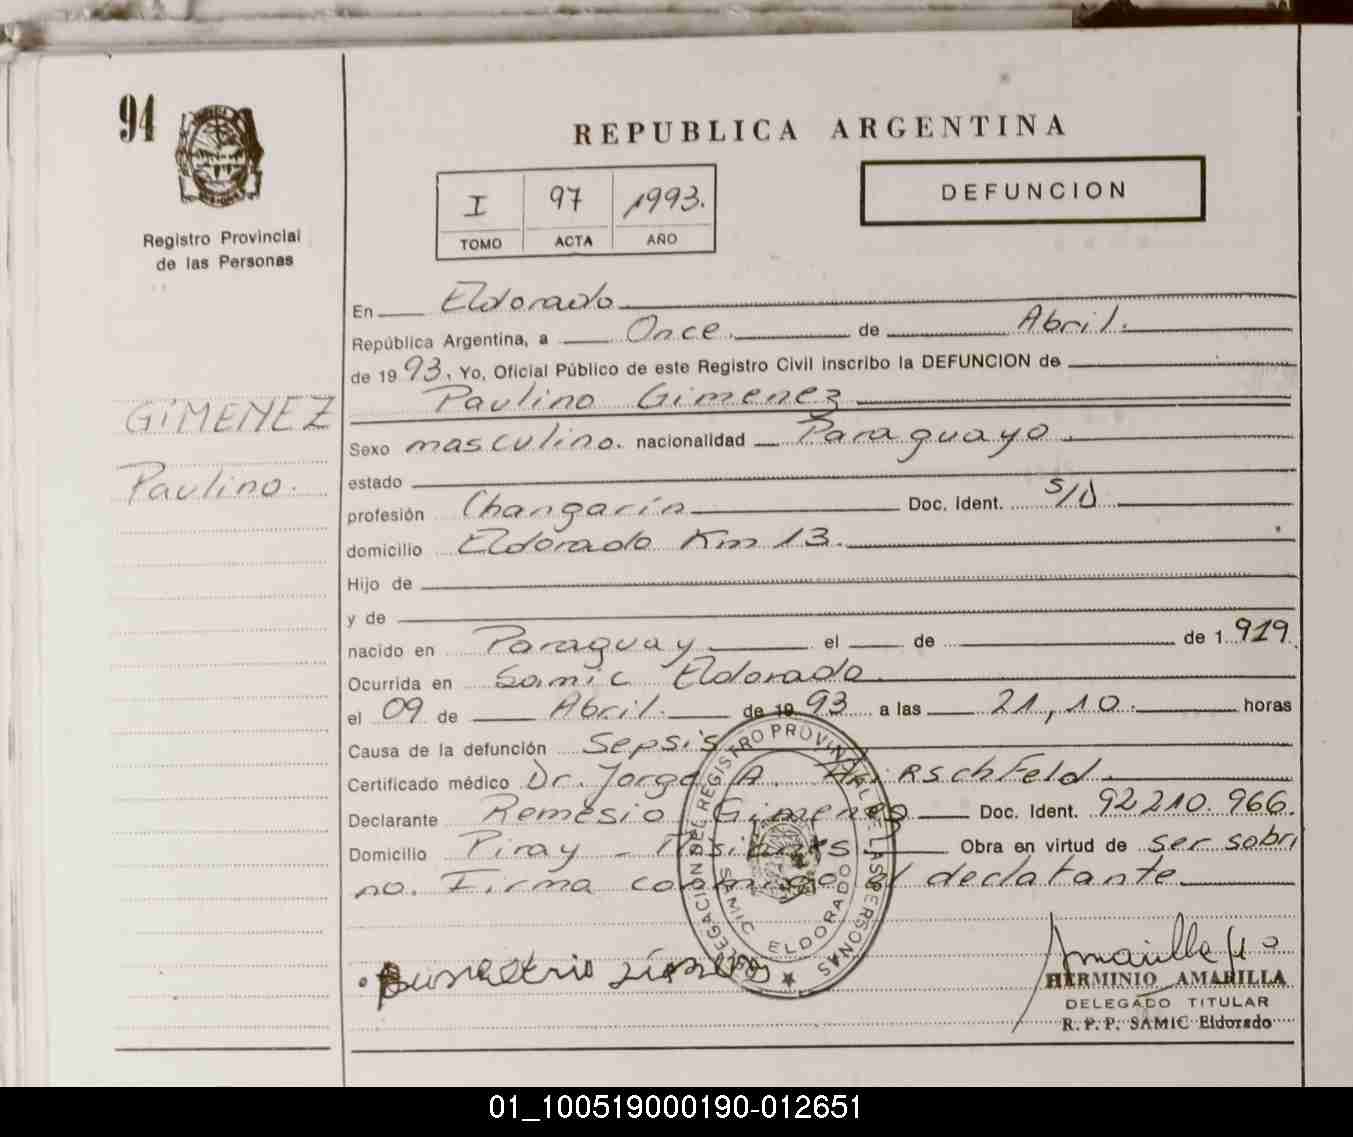 94
REPUBLICA ARGENTINA
I 97 1993.
TOMO ACTA AÑO
DEFUNCION
Registro Provincial
de las Personas
En Eldorado
República Argentina, a Once. de Abril.
de 1993. Yo, Oficial Público de este Registro Civil inscribo la DEFUNCION de
Paulino Gimenez
GIMENEZ
Paulino.
Sexo masculino. nacionalidad Paraguayo.
estado
profesión Changarín Doc. Ident. S/D
domicilio Eldorado Km 13.
Hijo de
y de
nacido en Paraguay el de de 1.919.
Ocurrida en Samic Eldorado.
el 09 de Abril. de 1993 a las 21,10. horas
Causa de la defunción Sepsis
Certificado médico Dr. Jorge A. Heirschfeld.
Declarante Remesio Gimenez Doc. Ident. 92210.966.
Domicilio Piray - Misiones Obra en virtud de ser sobri
no. Firma conmigo el declatante
DELEGACION DEL REGISTRO PROVINCIAL DE LAS PERSONAS
SAMIC ELDORADO
HERMINIO AMARILLA
DELEGADO TITULAR
R. P. P. SAMIC Eldorado
01_100519000190-012651